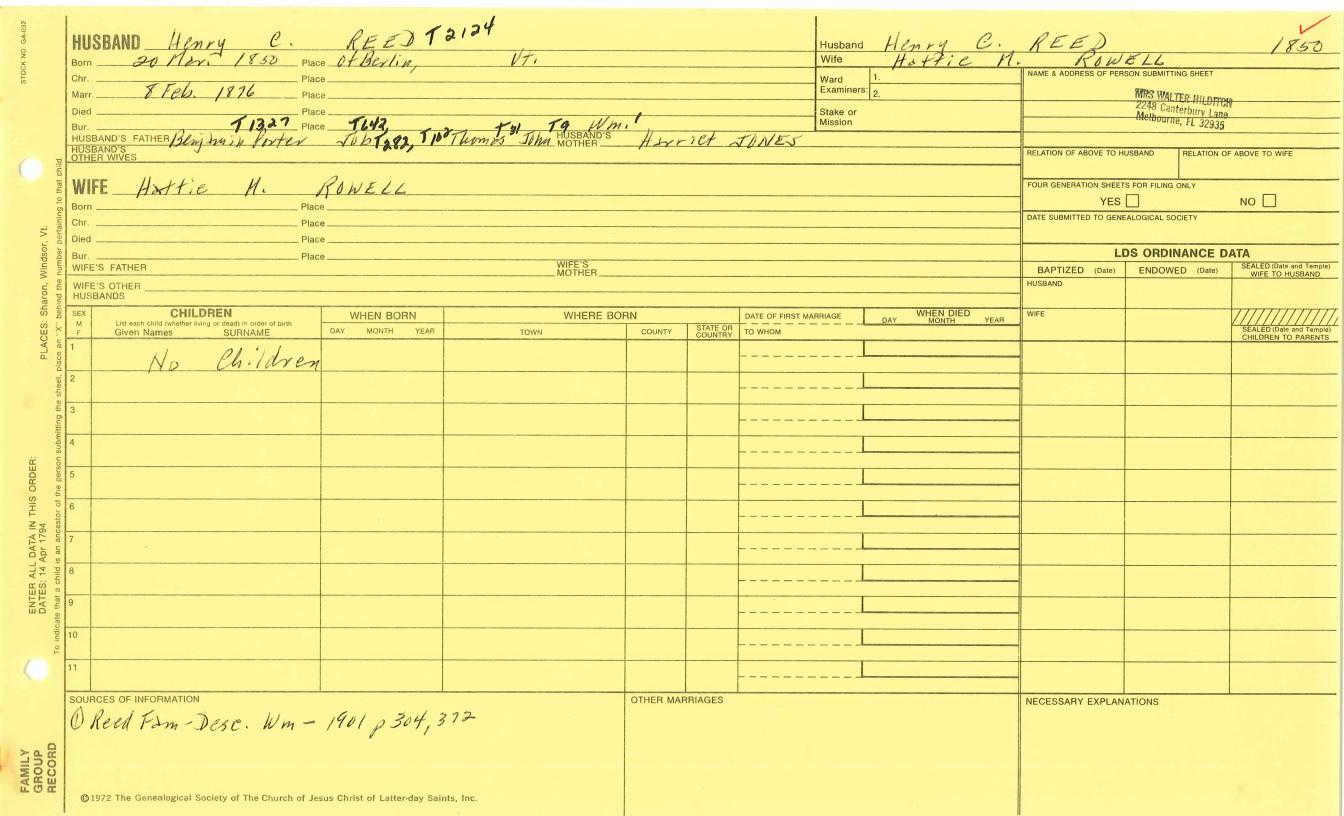 STOCK NO. GA-032
HUSBAND Henry C. REED T2124
Born 20 Mar. 1850 Place of Berlin, Vt.
Chr. Place
Marr. 8 Feb. 1876 Place
Died Place
Bur. Place
T1327 T642, T282, T102 T31 T9
HUSBAND'S FATHER Benjamin Porter Job Thomas John Wm.1 HUSBAND'S MOTHER Harriet JONES
HUSBAND'S OTHER WIVES
WIFE Hattie M. ROWELL
Born Place
Chr. Place
Died Place
Bur. Place
WIFE'S FATHER WIFE'S MOTHER
WIFE'S OTHER HUSBANDS
Husband Henry C. REED 1850
Wife Hattie M. ROWELL
Ward Examiners: 1.
2.
Stake or Mission
NAME & ADDRESS OF PERSON SUBMITTING SHEET
MRS WALTER HILDITCH
2248 Canterbury Lane
Melbourne, FL 32935
RELATION OF ABOVE TO HUSBAND RELATION OF ABOVE TO WIFE
FOUR GENERATION SHEETS FOR FILING ONLY
YES NO
DATE SUBMITTED TO GENEALOGICAL SOCIETY
LDS ORDINANCE DATA
BAPTIZED (Date) ENDOWED (Date) SEALED (Date and Temple) WIFE TO HUSBAND
HUSBAND
WIFE
SEALED (Date and Temple) CHILDREN TO PARENTS
SEX M F
CHILDREN
List each child (whether living or dead) in order of birth
Given Names SURNAME
WHEN BORN
DAY MONTH YEAR
WHERE BORN
TOWN COUNTY STATE OR COUNTRY
DATE OF FIRST MARRIAGE
TO WHOM
WHEN DIED
DAY MONTH YEAR
1 No Children
2
3
4
5
6
7
8
9
10
11
SOURCES OF INFORMATION
① Reed Fam-Desc. Wm - 1901 p 304, 372
OTHER MARRIAGES
NECESSARY EXPLANATIONS
©1972 The Genealogical Society of The Church of Jesus Christ of Latter-day Saints, Inc.
FAMILY GROUP RECORD
ENTER ALL DATA IN THIS ORDER:
DATES: 14 Apr 1794
PLACES: Sharon, Windsor, Vt.
To indicate that a child is an ancestor of the person submitting the sheet, place an "X" behind the number pertaining to that child.